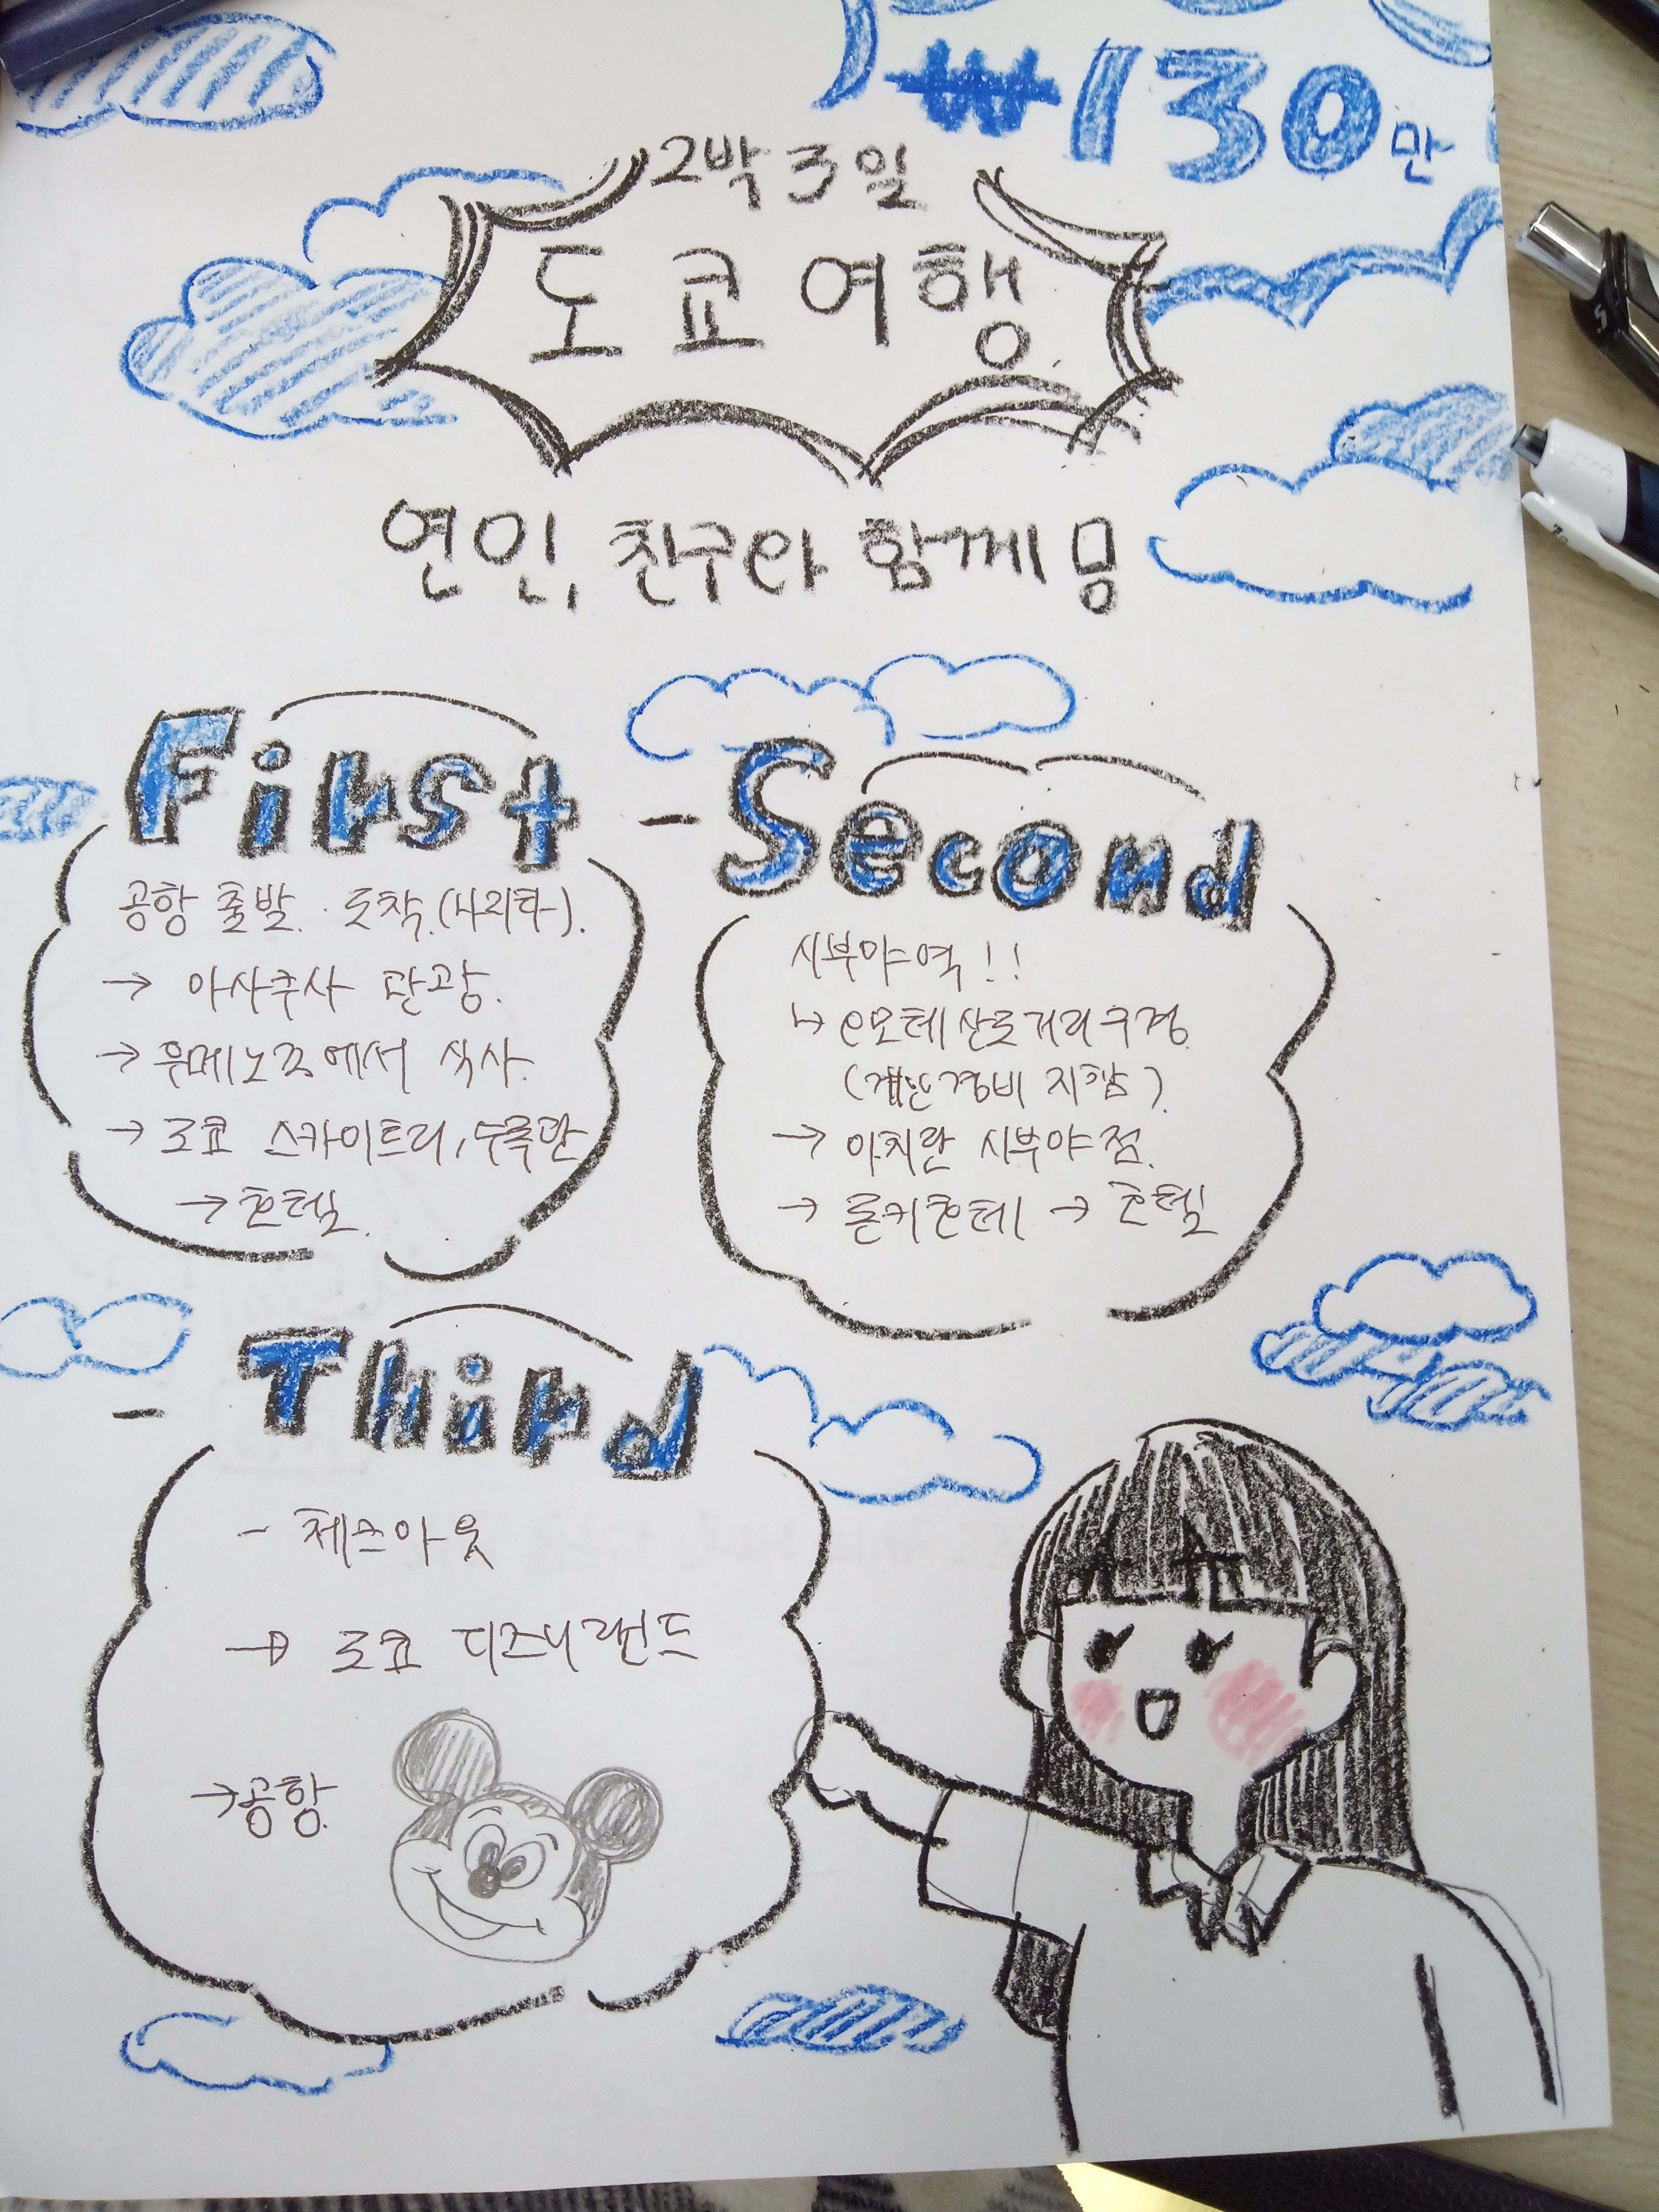 ₩130만
2박3일
도쿄여행
연인, 친구와 함께
First
공항 출발. 도착.(나리타).
→ 아사쿠사 관광.
→ 우메노즈에서 식사.
→ 도쿄 스카이트리, 수족관
→ 호텔.
- Second
시부야역!!
↳ 오모테산도거리구경
(개인경비 지참).
→ 이치란 시부야점.
→ 돈키호테 → 호텔
- Third
- 체크아웃
→ 도쿄 디즈니랜드
→ 공항.